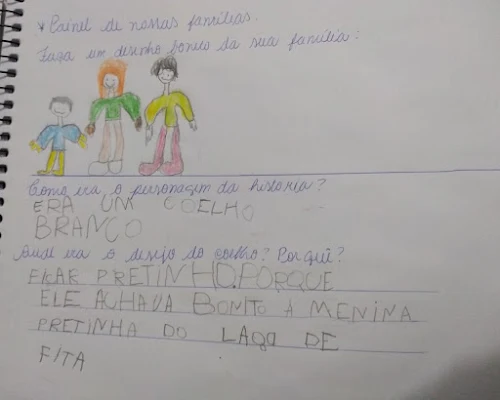 * Painel de nossas famílias.
Faça um desenho bonito da sua família:
Como era o personagem da história?
ERA UM COELHO
BRANCO
Qual era o desejo do coelho? Por quê?
FICAR PRETINHO. PORQUE
ELE ACHAVA BONITO A MENINA
PRETINHA DO LAÇO DE
FITA